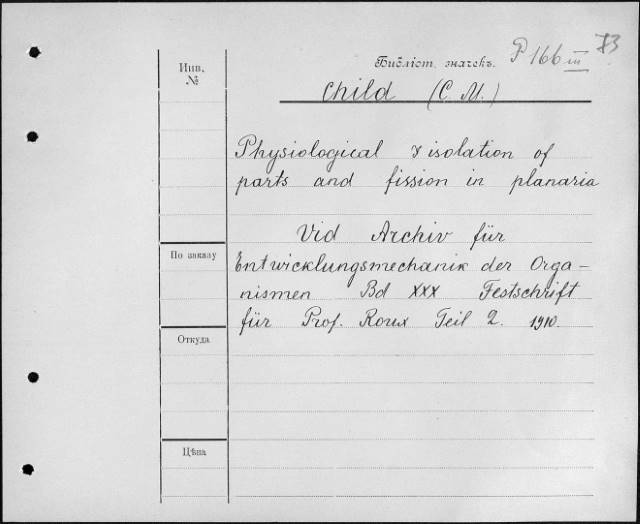 Инв.
№
Библіот. значекъ. P 166 III 73
Child (C. M.)
Physiological & isolation of
parts and fission in planaria
Vid Archiv für
Entwicklungsmechanik der Orga-
nismen Bd XXX Festschrift
für Prof. Roux Teil 2. 1910.
По заказу
Откуда
Цѣна